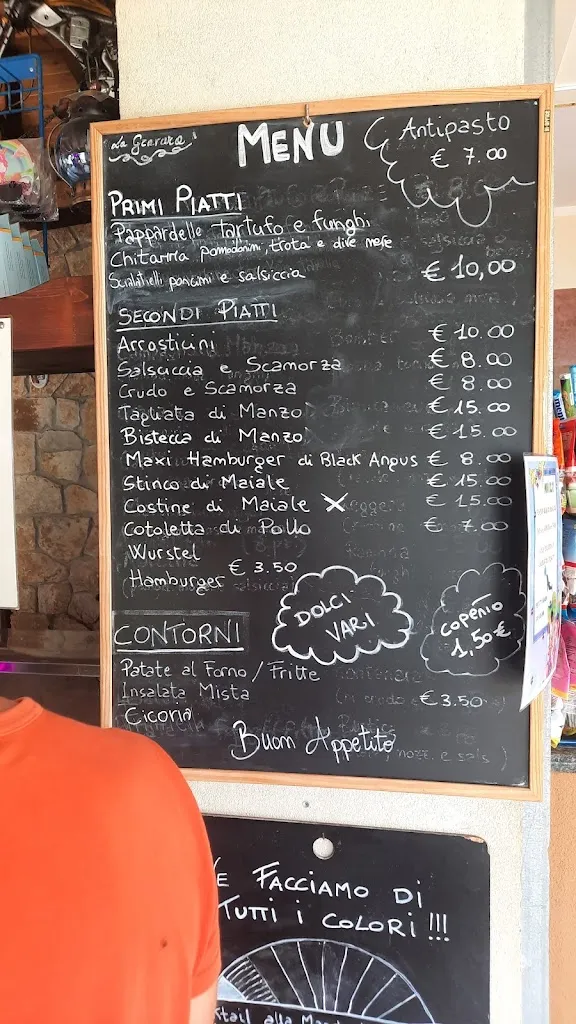 La
MENU
Antipasto
€ 7.00
PRIMI PIATTI
Pappardelle tartufo e funghi
Chitarrra pomodorini, trota e
salsiccia
€ 10,00
SECONDI PIATTI
Arrosticini € 10.00
Salsiccia e Scamorza € 8.00
Crudo e Scamorza € 8.00
Tagliata di Manzo € 15.00
Bistecca di Manzo € 15.00
Maxi Hamburger di Black Anpus € 8.00
Stinco di Maiale € 15.00
Costine di Maiale X € 15.00
Cotoletta di Pollo € 7.00
Wurstel
€ 3.50
Hamburger
DOLCI
VARI
COPERTO
1,50€
CONTORNI
Patate al Forno / Fritte
Insalata Mista €3.50
Cicoria
Buon Appetito
FACCIAMO DI
TUTTI I COLORI !!!
alla